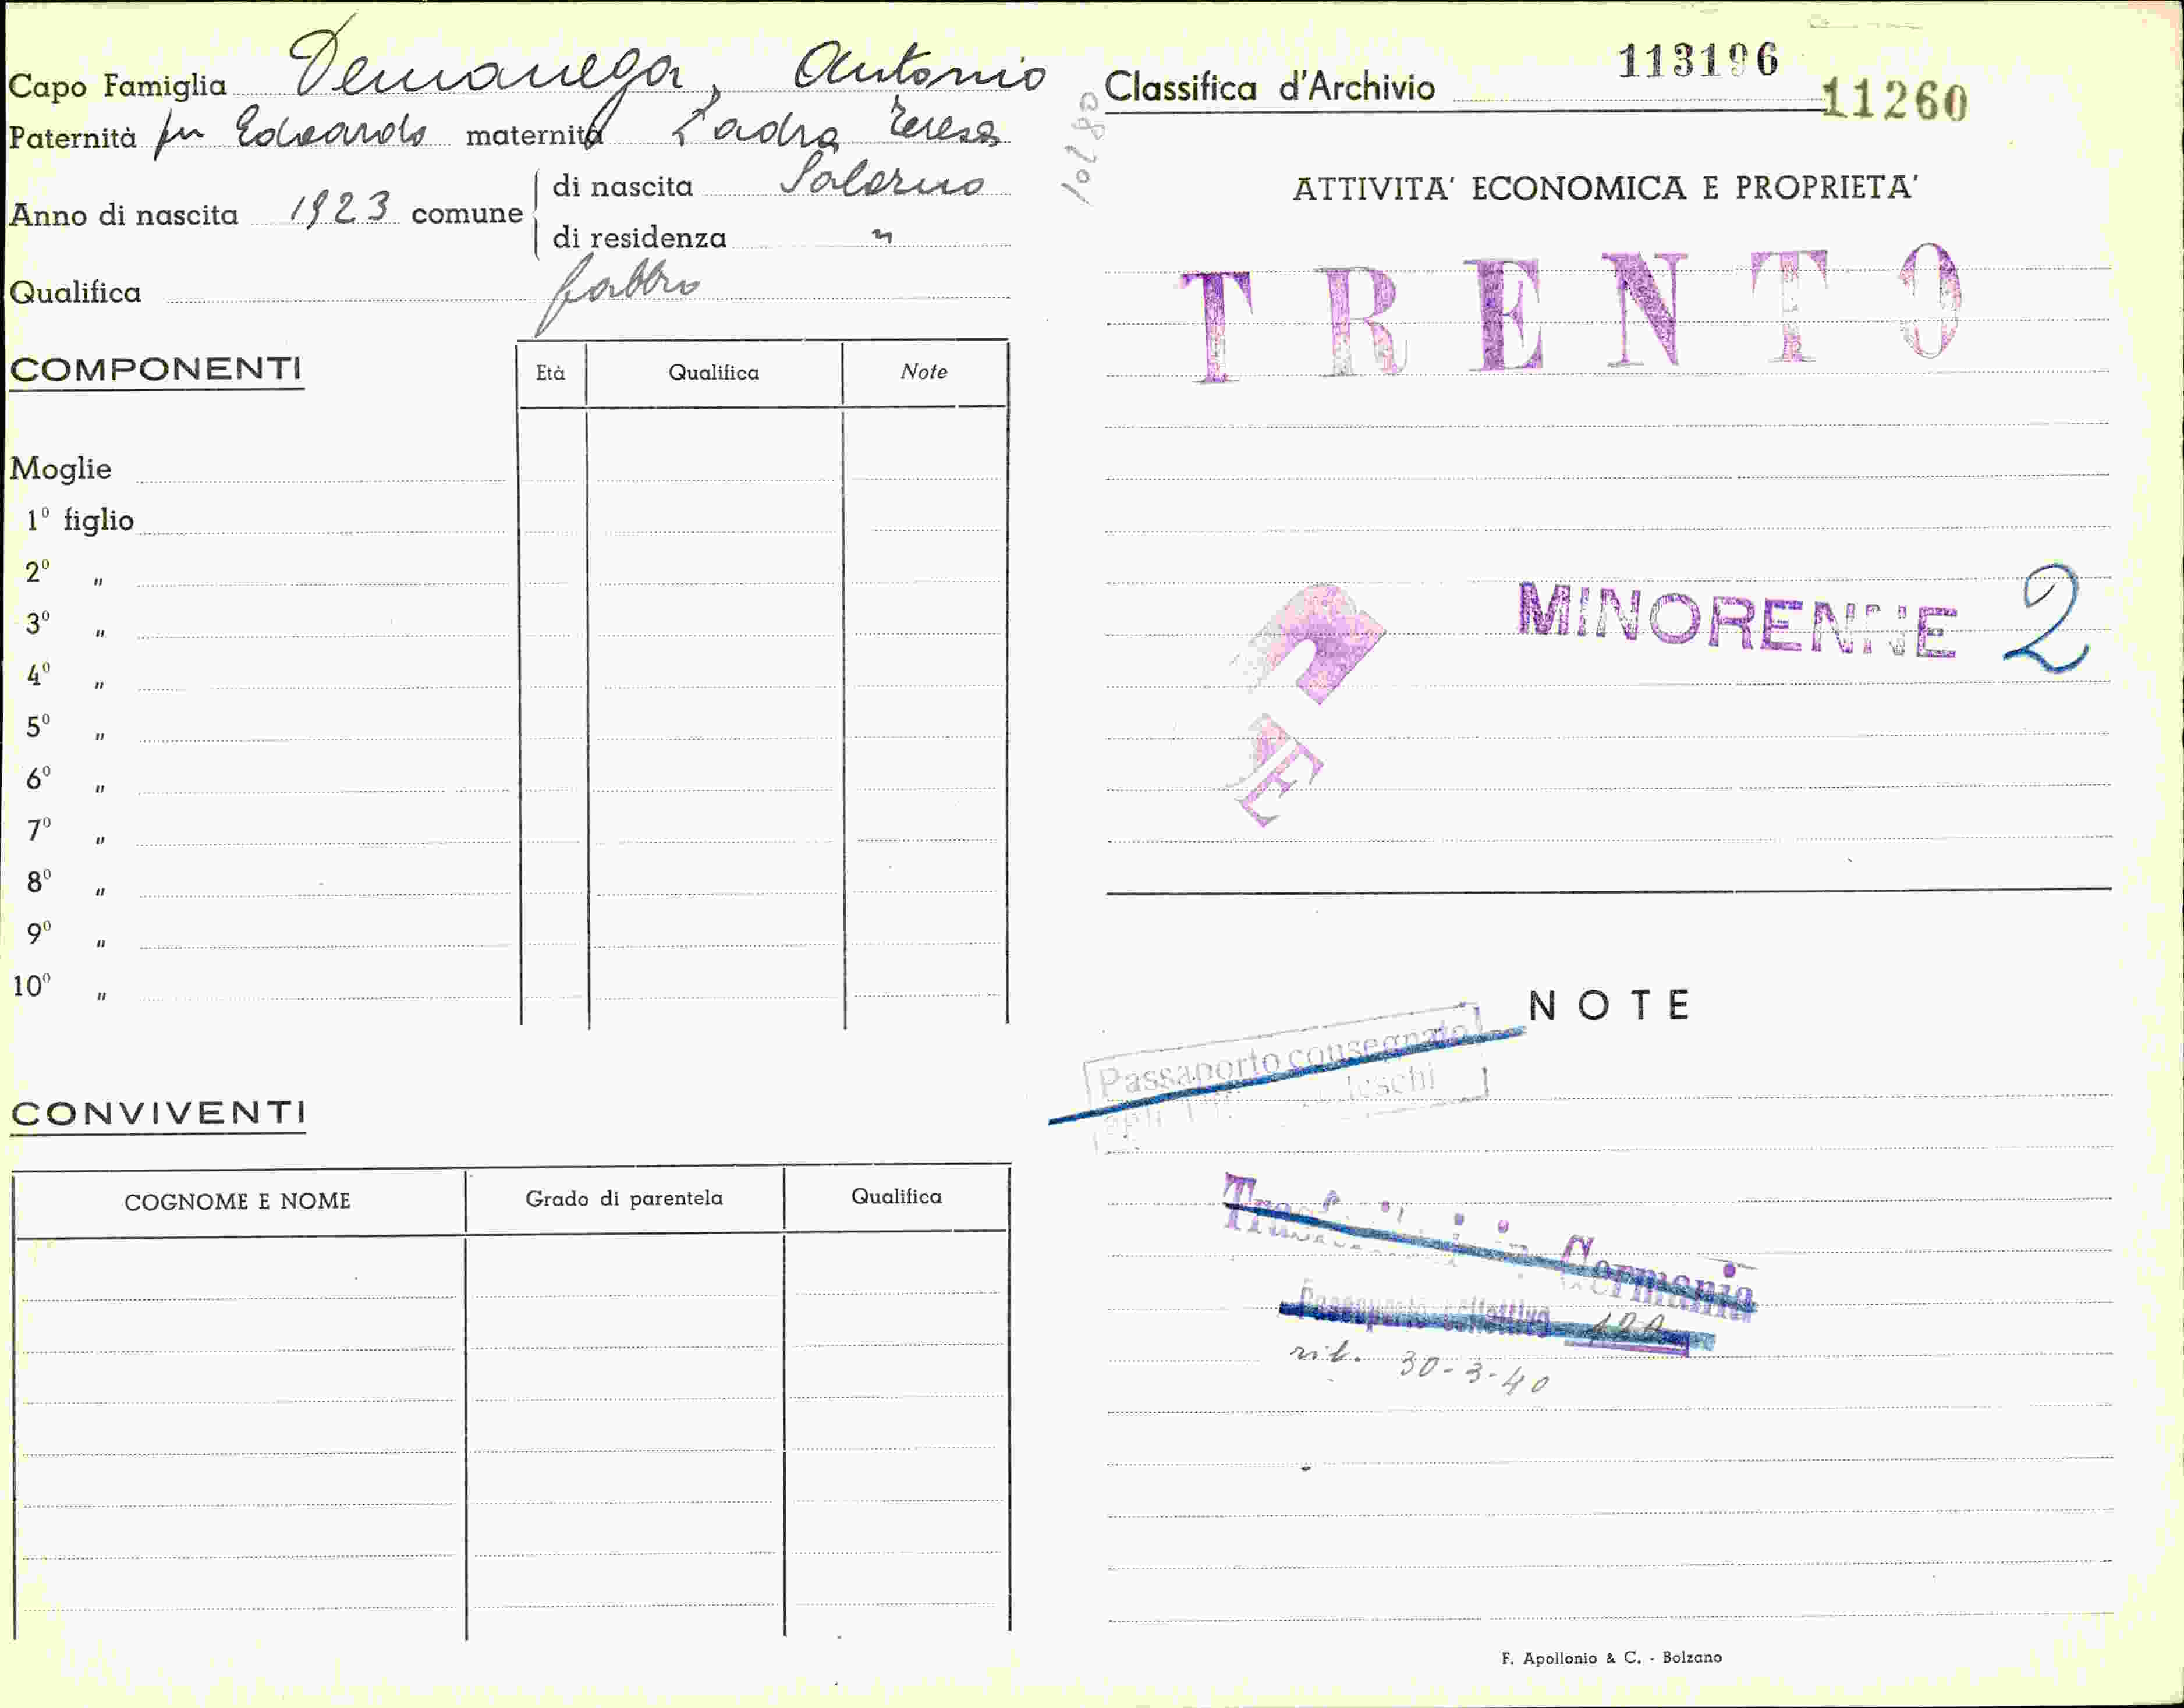 Capo Famiglia Demanega, Antonio
Paternità fu Edoardo maternità Zadra Teresa
Anno di nascita 1923 comune
di nascita Salorno
di residenza "
Qualifica fabbro
COMPONENTI
Età Qualifica Note
Moglie
1º figlio
2º "
3º "
4º "
5º "
6º "
7º "
8º "
9º "
10º "
CONVIVENTI
COGNOME E NOME Grado di parentela Qualifica
113196
Classifica d'Archivio 11260
10280
ATTIVITA' ECONOMICA E PROPRIETA'
TRENTO
MINORENNE 2
E
NOTE
Passaporto consegnato
Germania
Passaporto collettivo
rit. 30-3-40
F. Apollonio & C. - Bolzano